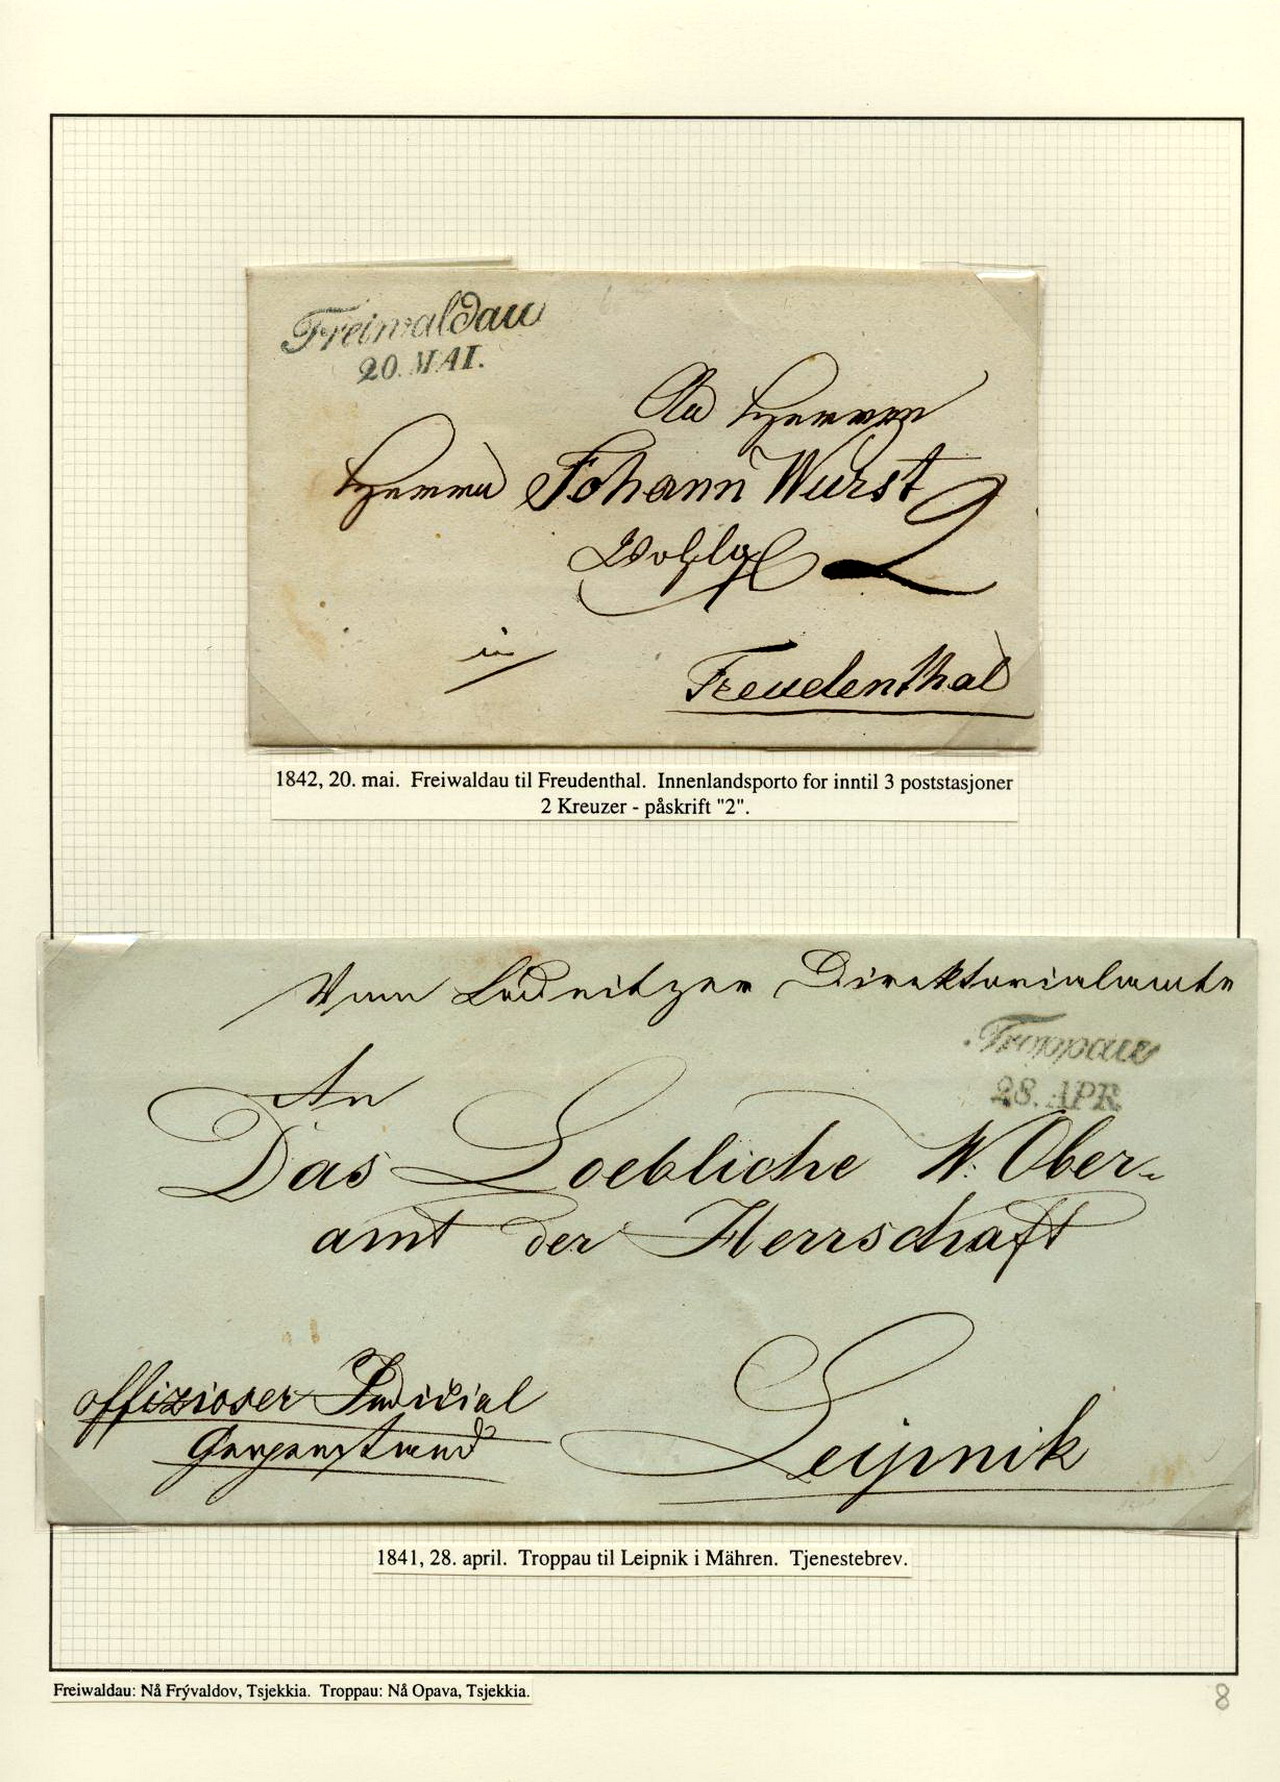 Freiwaldau
20. MAI.
An Herrn
Herrn Johann Wurst
2
Wohlg
in
Freudenthal
1842, 20. mai. Freiwaldau til Freudenthal. Innenlandsporto for inntil 3 poststasjoner
2 Kreuzer - påskrift "2".
Vom Lodnitzer Direktorialamte
Troppau
28. APR.
An
Das Loebliche W. Ober-
amt der Herrschaft
offizioser Judicial
Gegenstand
Leipnik
1841, 28. april. Troppau til Leipnik i Mähren. Tjenestebrev.
Freiwaldau: Nå Frývaldov, Tsjekkia. Troppau: Nå Opava, Tsjekkia.
8